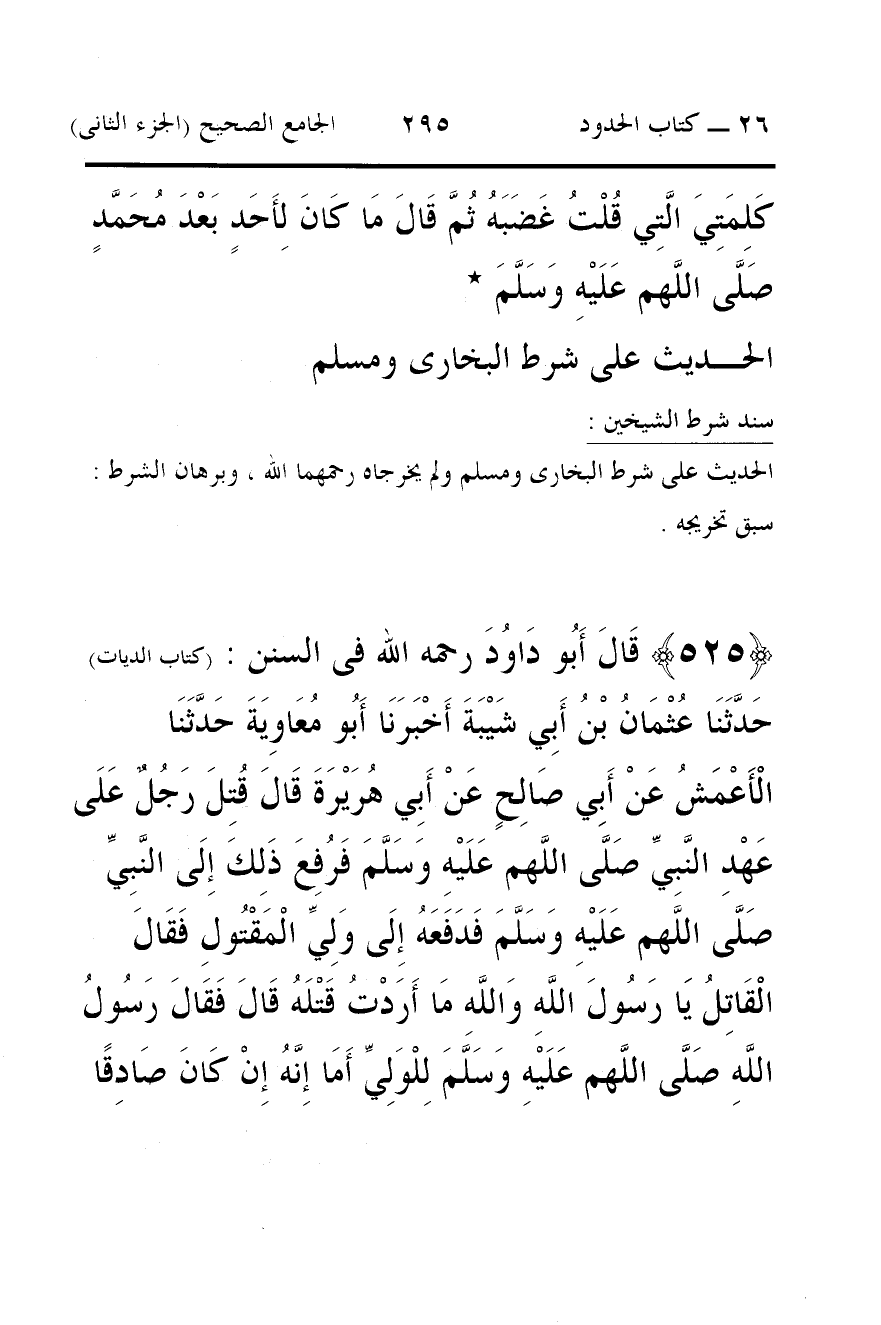 ٢٦ ــ كتاب الحدود ٢٩٥ الجامع الصحيح (الجزء الثانى)
كَلِمَتِيَ الَّتِي قُلْتُ غَضَبَهُ ثُمَّ قَالَ مَا كَانَ لِأَحَدٍ بَعْدَ مُحَمَّدٍ
صَلَّى اللهم عَلَيْهِ وَسَلَّمَ *
الحـــديث على شرط البخارى ومسلم
سند شرط الشيخين :
الحديث على شرط البخارى ومسلم ولم يخرجاه رحمهما الله ، وبرهان الشرط :
سبق تخريجه .
﴿٥٢٥﴾ قَالَ أَبُو دَاوُدَ رحمه الله فى السنن : (كتاب الديات)
حَدَّثَنَا عُثْمَانُ بْنُ أَبِي شَيْبَةَ أَخْبَرَنَا أَبُو مُعَاوِيَةَ حَدَّثَنَا
الْأَعْمَشُ عَنْ أَبِي صَالِحٍ عَنْ أَبِي هُرَيْرَةَ قَالَ قُتِلَ رَجُلٌ عَلَى
عَهْدِ النَّبِيِّ صَلَّى اللهم عَلَيْهِ وَسَلَّمَ فَرُفِعَ ذَلِكَ إِلَى النَّبِيِّ
صَلَّى اللهم عَلَيْهِ وَسَلَّمَ فَدَفَعَهُ إِلَى وَلِيِّ الْمَقْتُولِ فَقَالَ
الْقَاتِلُ يَا رَسُولَ اللَّهِ وَاللَّهِ مَا أَرَدْتُ قَتْلَهُ قَالَ فَقَالَ رَسُولُ
اللَّهِ صَلَّى اللهم عَلَيْهِ وَسَلَّمَ لِلْوَلِيِّ أَمَا إِنَّهُ إِنْ كَانَ صَادِقًا